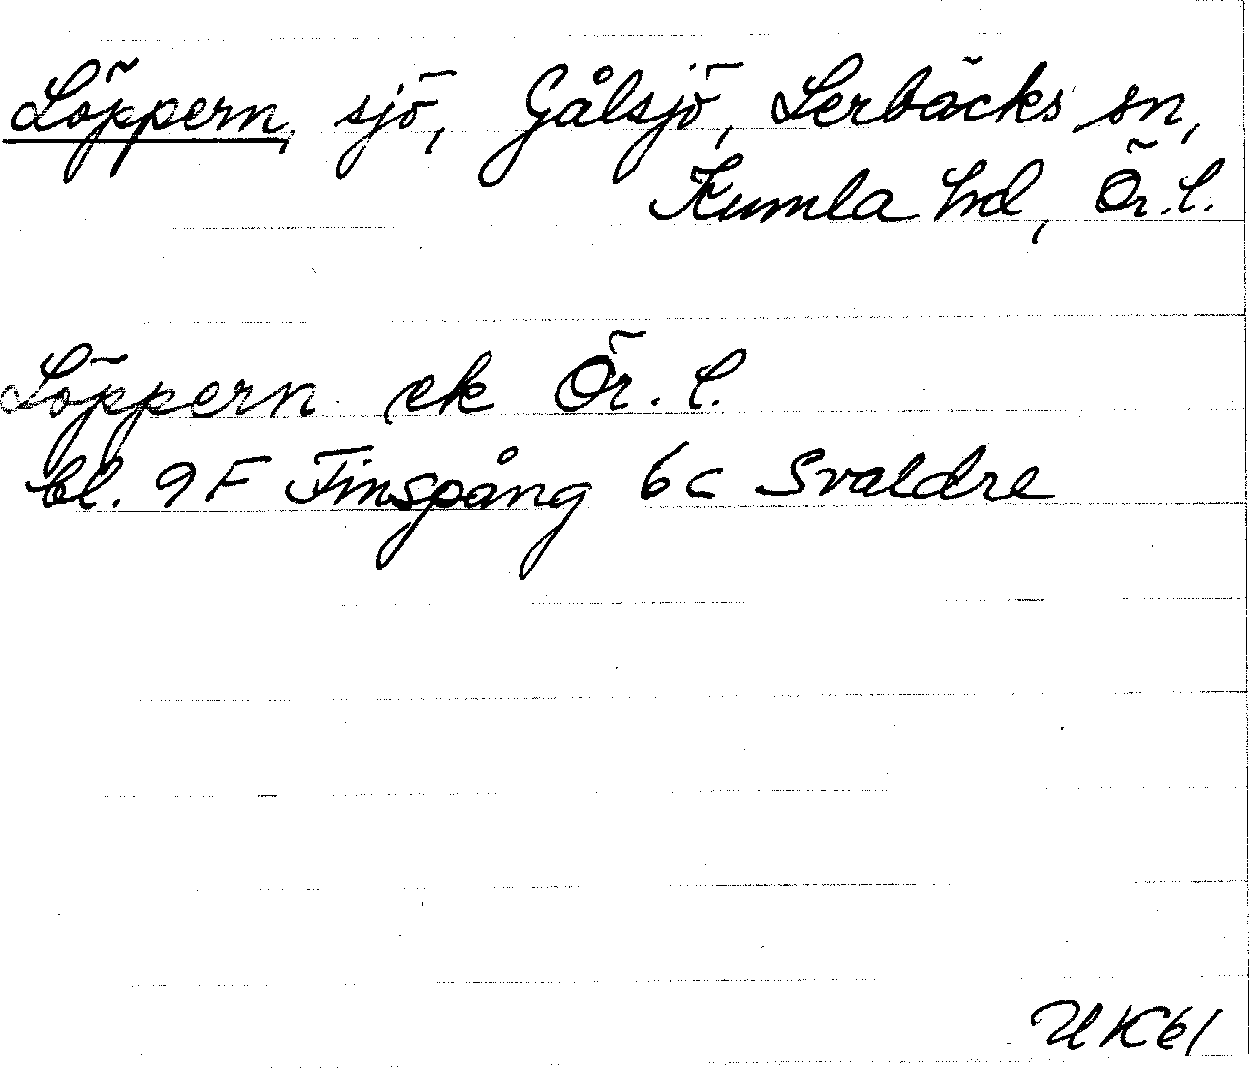 Löppern, sjö, Gålsjö, Lerbäcks sn,
Kumla hd, Ör. l.
Löppern ek Ör. l.
bl. 9F Finspång 6c Svaldre